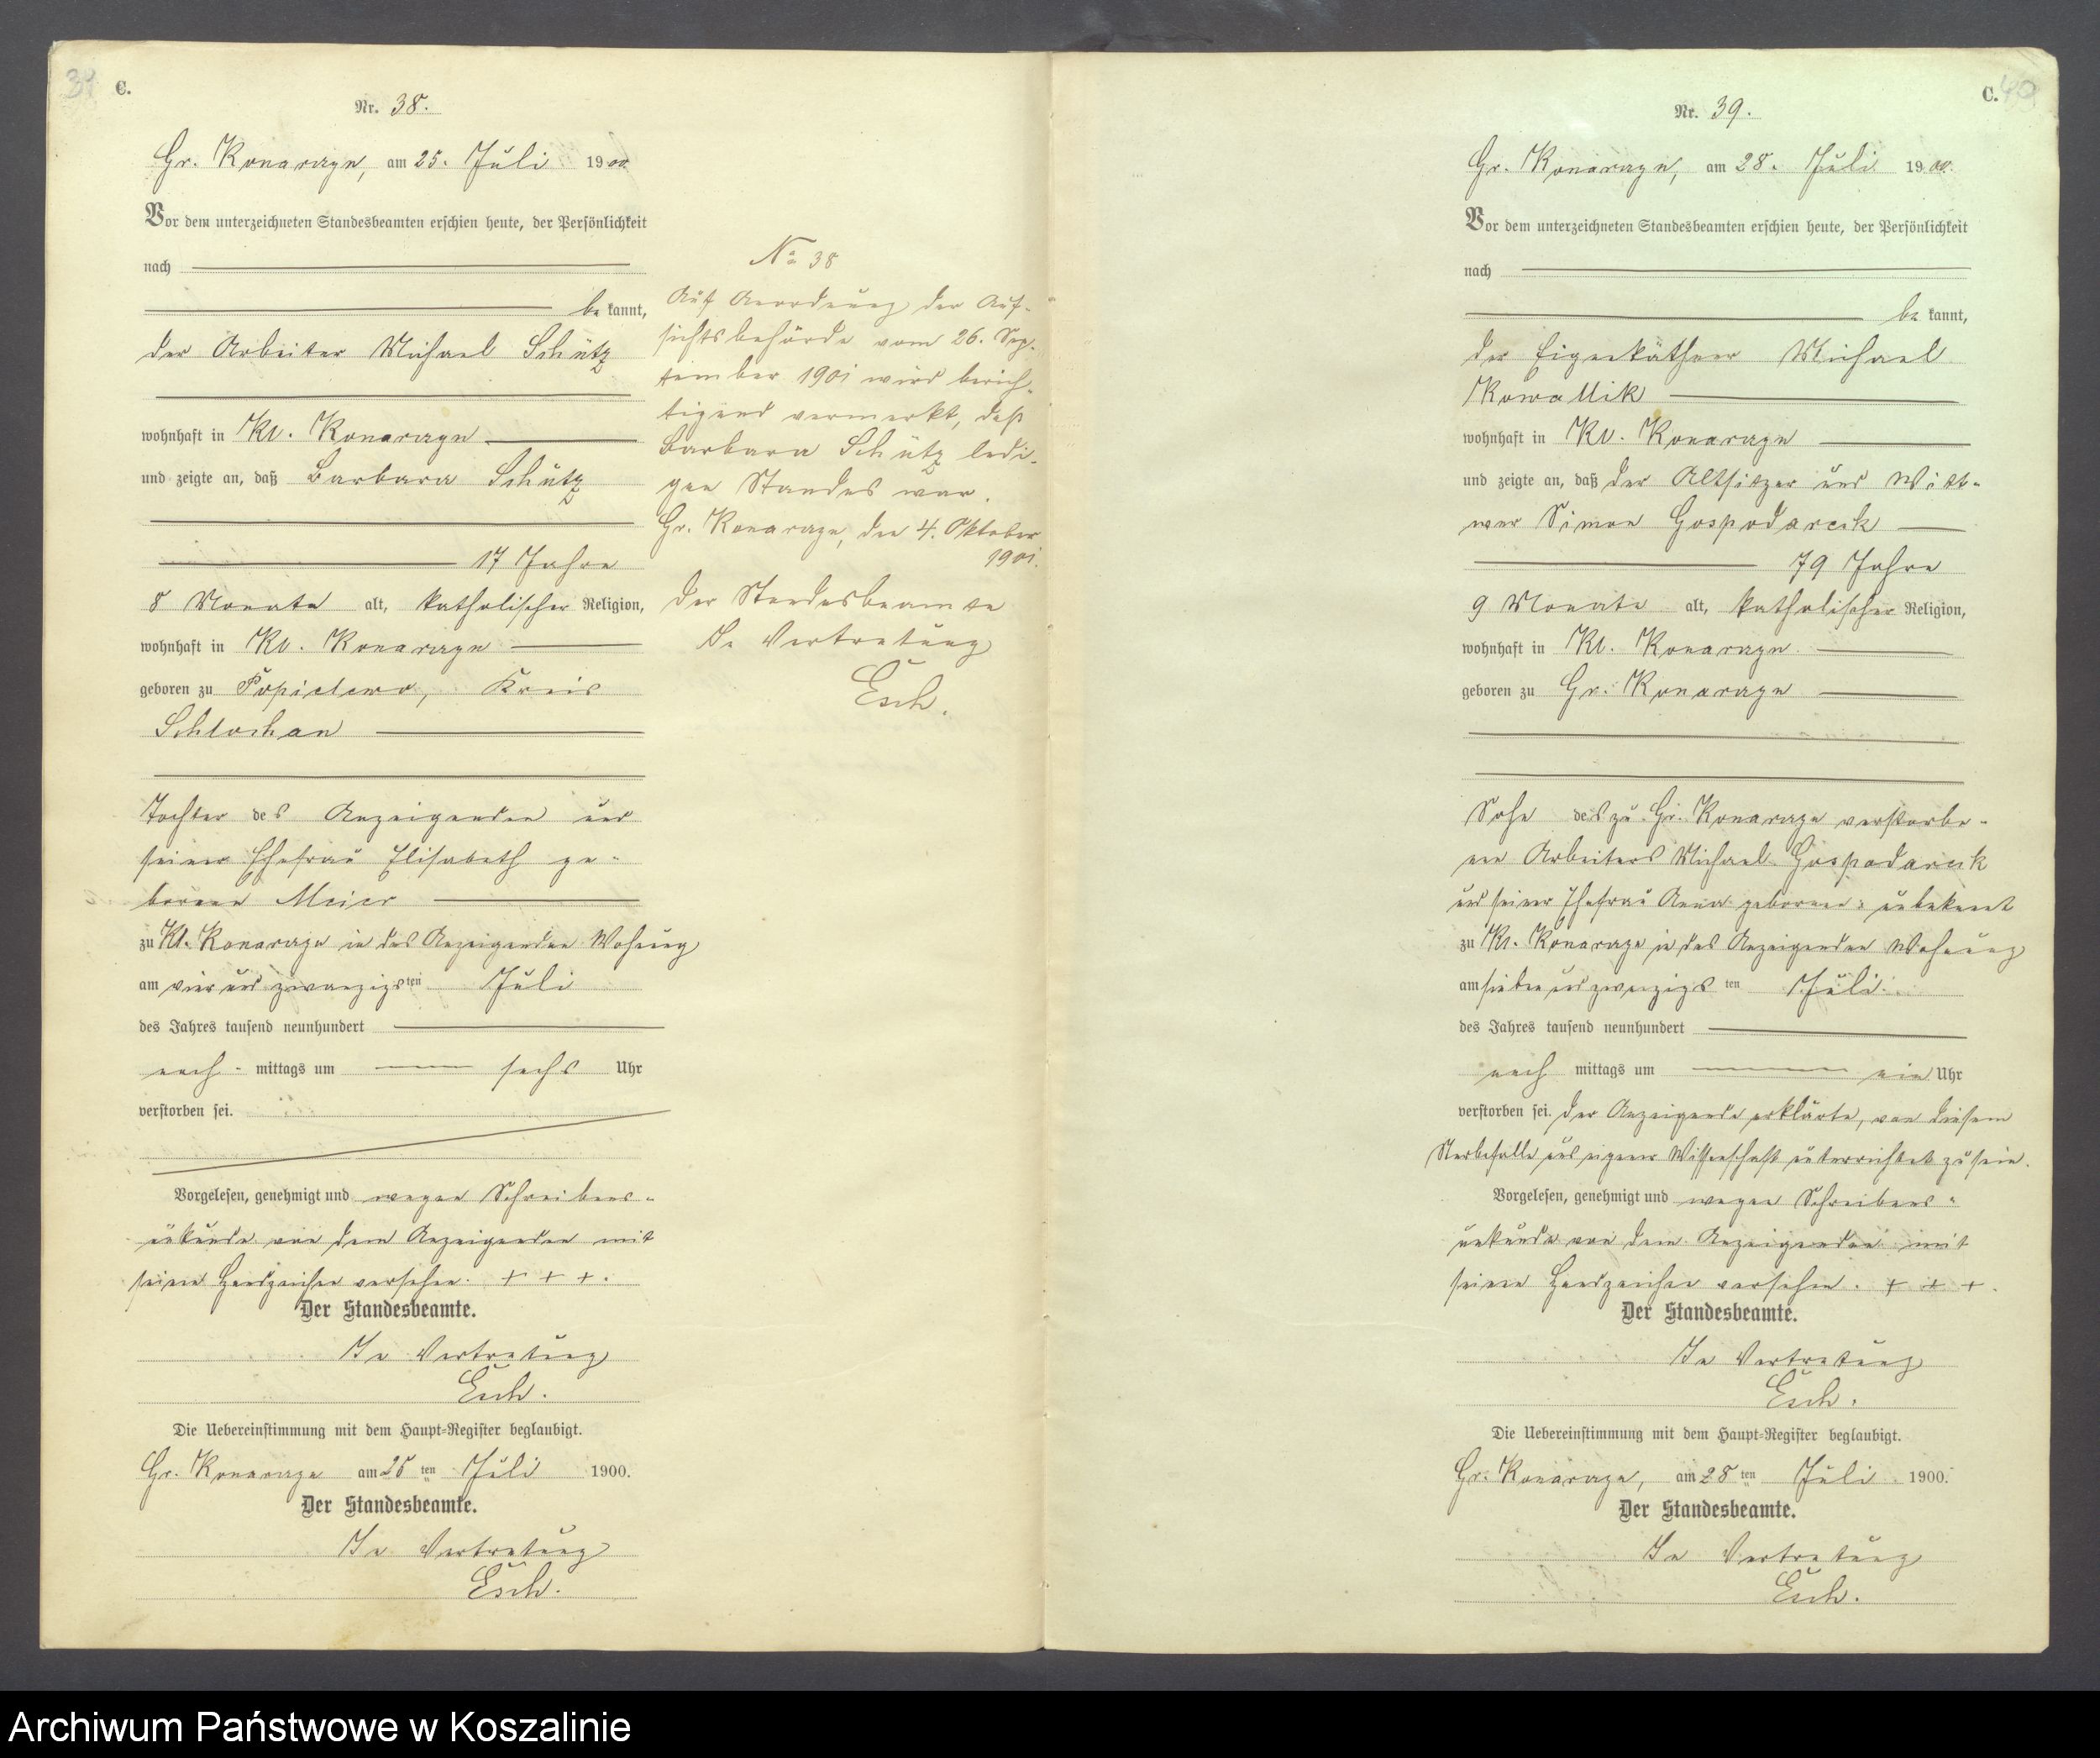 39
C.
Nr. 38.
Gr. Konarzyn, am 25. Juli 1900.
Vor dem unterzeichneten Standesbeamten erschien heute, der Persönlichkeit
nach
be kannt,
der Arbeiter Michael Schütz
wohnhaft in Kl. Konarzyn
und zeigte an, daß Barbara Schütz
17 Jahre
8 Monate alt, katholischer Religion,
wohnhaft in Kl. Konarzyn
geboren zu Popielewo, Kreis
Schlochau
Tochter des Anzeigenden und
seiner Ehefrau Elisabeth ge-
borene Meier
zu Kl. Konarzyn in des Anzeigenden Wohnung
am vier und zwanzigsten Juli
des Jahres tausend neunhundert
nach- mittags um sechs Uhr
verstorben sei.
Vorgelesen, genehmigt und wegen Schreibens-
unkunde von dem Anzeigenden mit
seinem Handzeichen versehen. + + +.
Der Standesbeamte.
In Vertretung
Esch.
Die Uebereinstimmung mit dem Haupt-Register beglaubigt.
Gr. Konarzyn am 25 ten Juli 1900.
Der Standesbeamte.
In Vertretung
Esch.
No 38
Auf Anordnung der Auf-
sichtsbehörde vom 26. Sep-
tember 1901 wird berich-
tigend vermerkt, daß
Barbara Schütz ledi-
gen Standes war.
Gr. Konarzyn, den 4. Oktober
1901.
Der Standesbeamte
In Vertretung
Esch.
40
C.
Nr. 39.
Gr. Konarzyn, am 28. Juli 1900.
Vor dem unterzeichneten Standesbeamten erschien heute, der Persönlichkeit
nach
be kannt,
der Eigenkäthner Michael
Kowallik
wohnhaft in Kl. Konarzyn
und zeigte an, daß der Altsitzer und Witt-
wer Simon Gospodarek
79 Jahre
9 Monate alt, katholischer Religion,
wohnhaft in Kl. Konarzyn
geboren zu Gr. Konarzyn
Sohn des zu Gr. Konarzyn verstorbe-
nen Arbeiters Michael Gospodarek
und seiner Ehefrau Anna geborene: unbekannt
zu Kl. Konarzyn in des Anzeigenden Wohnung
am sieben und zwanzigs ten Juli
des Jahres tausend neunhundert
nach mittags um ein Uhr
verstorben sei. Der Anzeigende erklärte, von diesem
Sterbefalle aus eigener Wissenschaft unterrichtet zu sein.
Vorgelesen, genehmigt und wegen Schreibens-
unkunde von dem Anzeigenden mit
seinem Handzeichen versehen. + + +.
Der Standesbeamte.
In Vertretung
Esch.
Die Uebereinstimmung mit dem Haupt-Register beglaubigt.
Gr. Konarzyn, am 28 ten Juli 1900.
Der Standesbeamte.
In Vertretung
Esch.
Archiwum Państwowe w Koszalinie